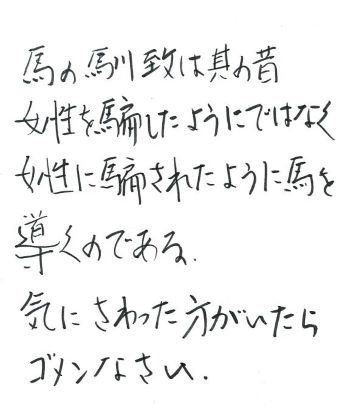 馬の馴致は其の昔
女性を騙したようにではなく
女性に騙されたように馬を
導くのである.
気にさわった方がいたら
ゴメンなさい.